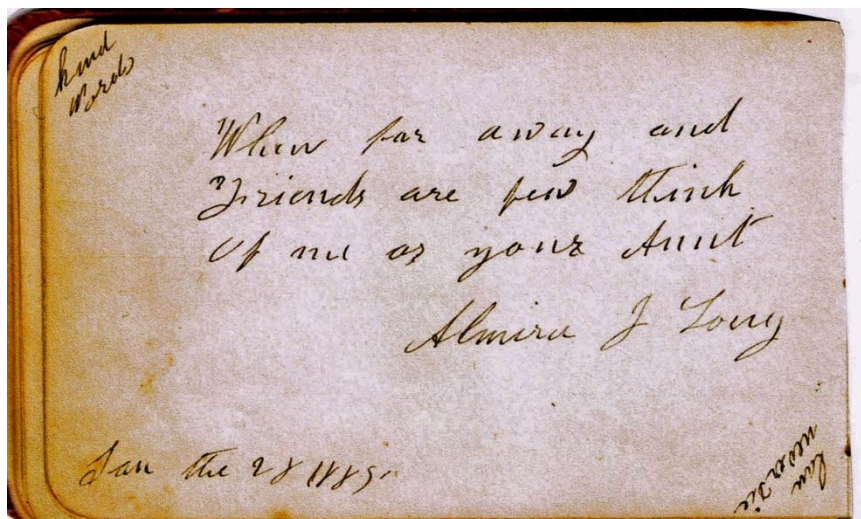 kind
words
When far away and
Friends are few think
Of me as your Aunt
Almira J Long
Jan the 28 1889.
can
never die